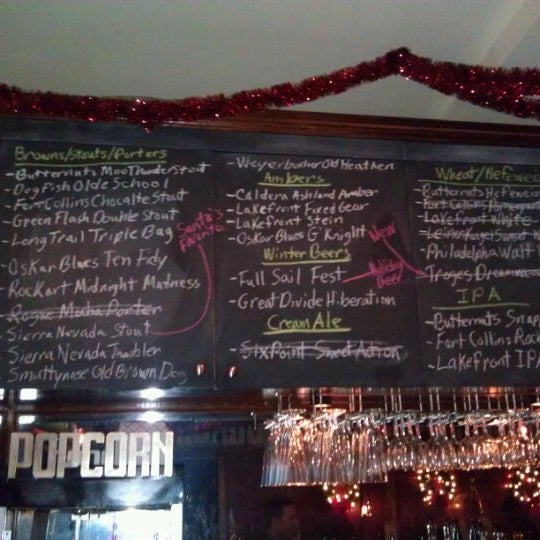 Browns/Stouts/Porters
-Butternuts MooThunder Stout
-DogFish Olde School
-Fort Collins Chocalte Stout
-Green Flash Double Stout
-Long Trail Triple Bag
-Oskar Blues Ten Fidy
-Rockart Midnight Madness
-Rogue Mocha Porter
-Sierra Nevada Stout
-Sierra Nevada Tumbler
-Smuttynose Old Brown Dog
Santa's
Favorite
-Weyerbacher Old Heathen
Ambers
-Caldera Ashland Amber
-Lakefront Fixed Gear
-Lakefront Stein
-Oskar Blues G'Knight
Winter Beers
-Full Sail Fest
Holiday
Beer
-Great Divide Hibernation
Cream Ale
-SixPoint Sweet Action
New
Wheat/Hefeweiz
-Butternuts Hefewei
-Fort Collins
-Lakefront White
-Leinenkugel Sunset Wh
-Philadelphia Walt W
-Troegs Dreamwea
IPA
-Butternuts Snap
-Fort Collins Rock
-Lakefront IPA
POPCORN